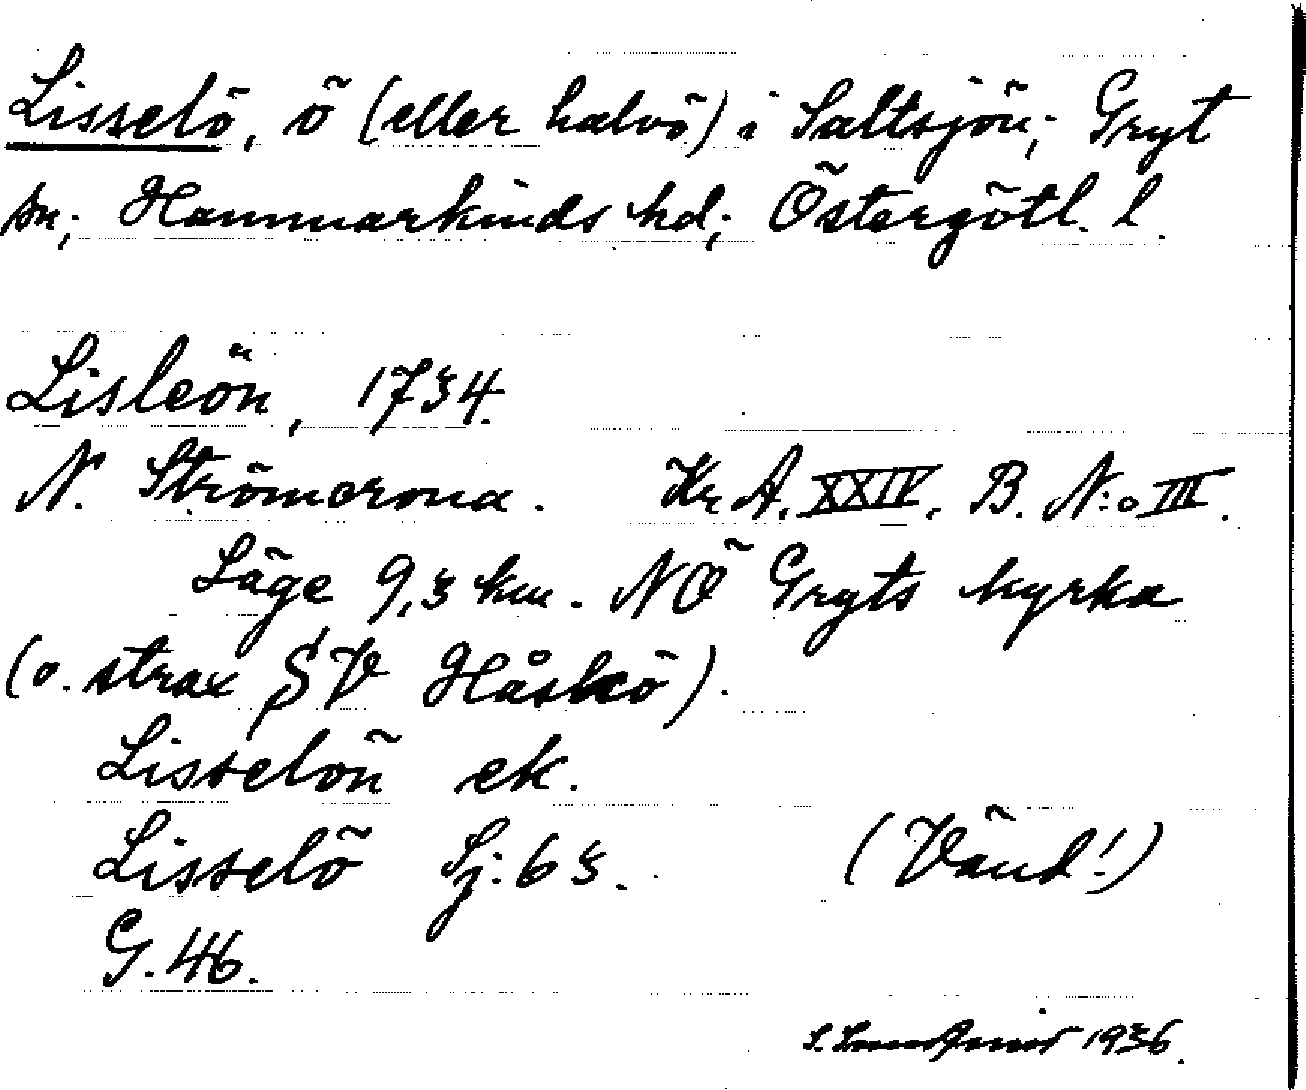 Lisselö, ö (eller halvö) i Saltsjön; Gryt
sn; Hammarkinds hd; Östergötl. l.
Lisleön, 1734.
N. Strömcrona. Kr A. XXIV. B. N:o III.
Läge 9,3 km. NÖ Gryts kyrka
(o. strax SV Håskö).
Lisselön ek.
Lisselö Sj: 63. (Vänd!)
G. 46.
S. 1936.